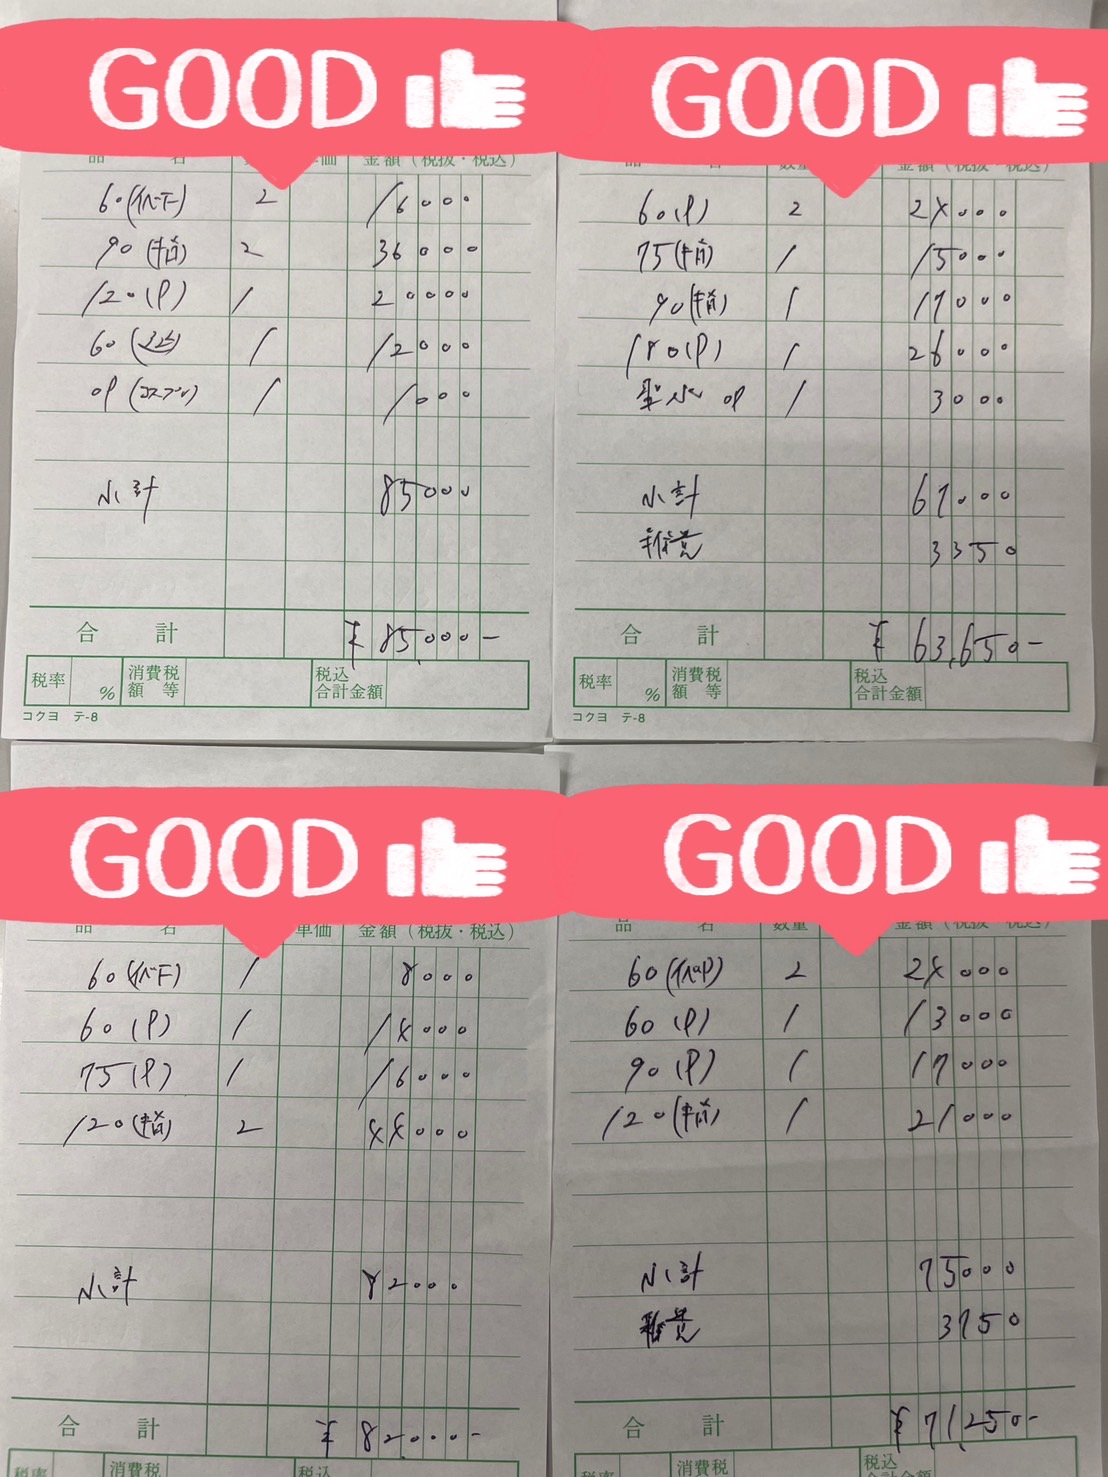 GOOD
品 名 単価 金額（税抜・税込）
60(イベF) 2 16000
90(指) 2 36000
120(P) 1 20000
60 1 12000
OP(コスプレ) 1 1000
小計 85000
合 計 ¥85,000-
税率 % 消費税額等 税込合計金額
コクヨ テ-8
GOOD
品 名 数量 金額（税抜・税込）
60(P) 2 24000
75(指) 1 15000
90(指) 1 17000
180(P) 1 26000
聖水 OP 1 3000
小計 67000
雑費 3350
合 計 ¥63,650-
税率 % 消費税額等 税込合計金額
コクヨ テ-8
GOOD
品 名 単価 金額（税抜・税込）
60(イベF) 1 8000
60(P) 1 14000
75(P) 1 16000
120(指) 2 44000
小計 82000
合 計 ¥82000-
税率 消費税 税込
GOOD
品 名 数量 金額（税抜・税込）
60(イベP) 2 24000
60(P) 1 13000
90(P) 1 17000
120(指) 1 21000
小計 75000
雑費 3750
合 計 ¥71,250-
税率 消費税 税込合計金額